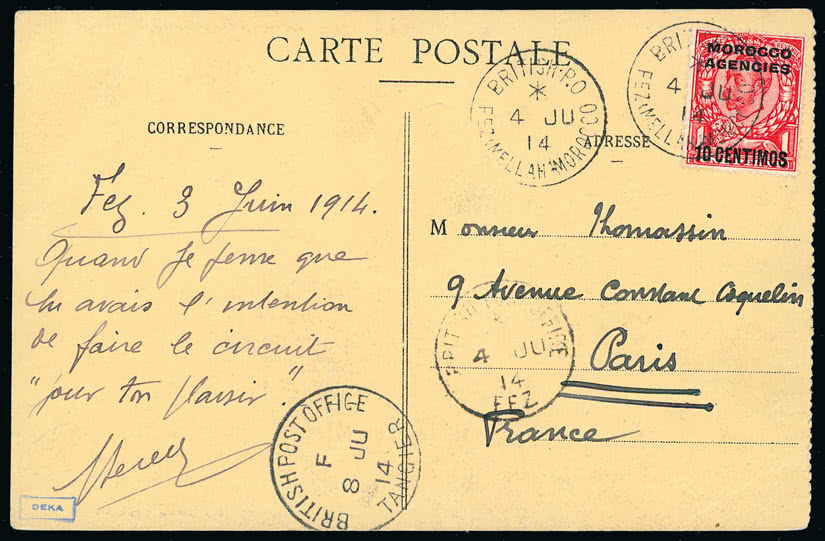 CARTE POSTALE
CORRESPONDANCE
ADRESSE
MOROCCO
AGENCIES
1
10 CENTIMOS
BRITISH·P.O
4 JU
14
FEZ (MELLAH) MOROCCO
BRIT
4 JU
14
FEZ (MELLAH)
Fez. 3 Juin 1914.
Quand je pense que
tu avais l'intention
de faire le circuit
"pour ton plaisir."
Monsieur Thomassin
9 Avenue Constant Coquelin
Paris
France
BRIT
4 JU
14
FEZ
BRITISH POST OFFICE
F
8 JU
14
TANGIER
DEKA